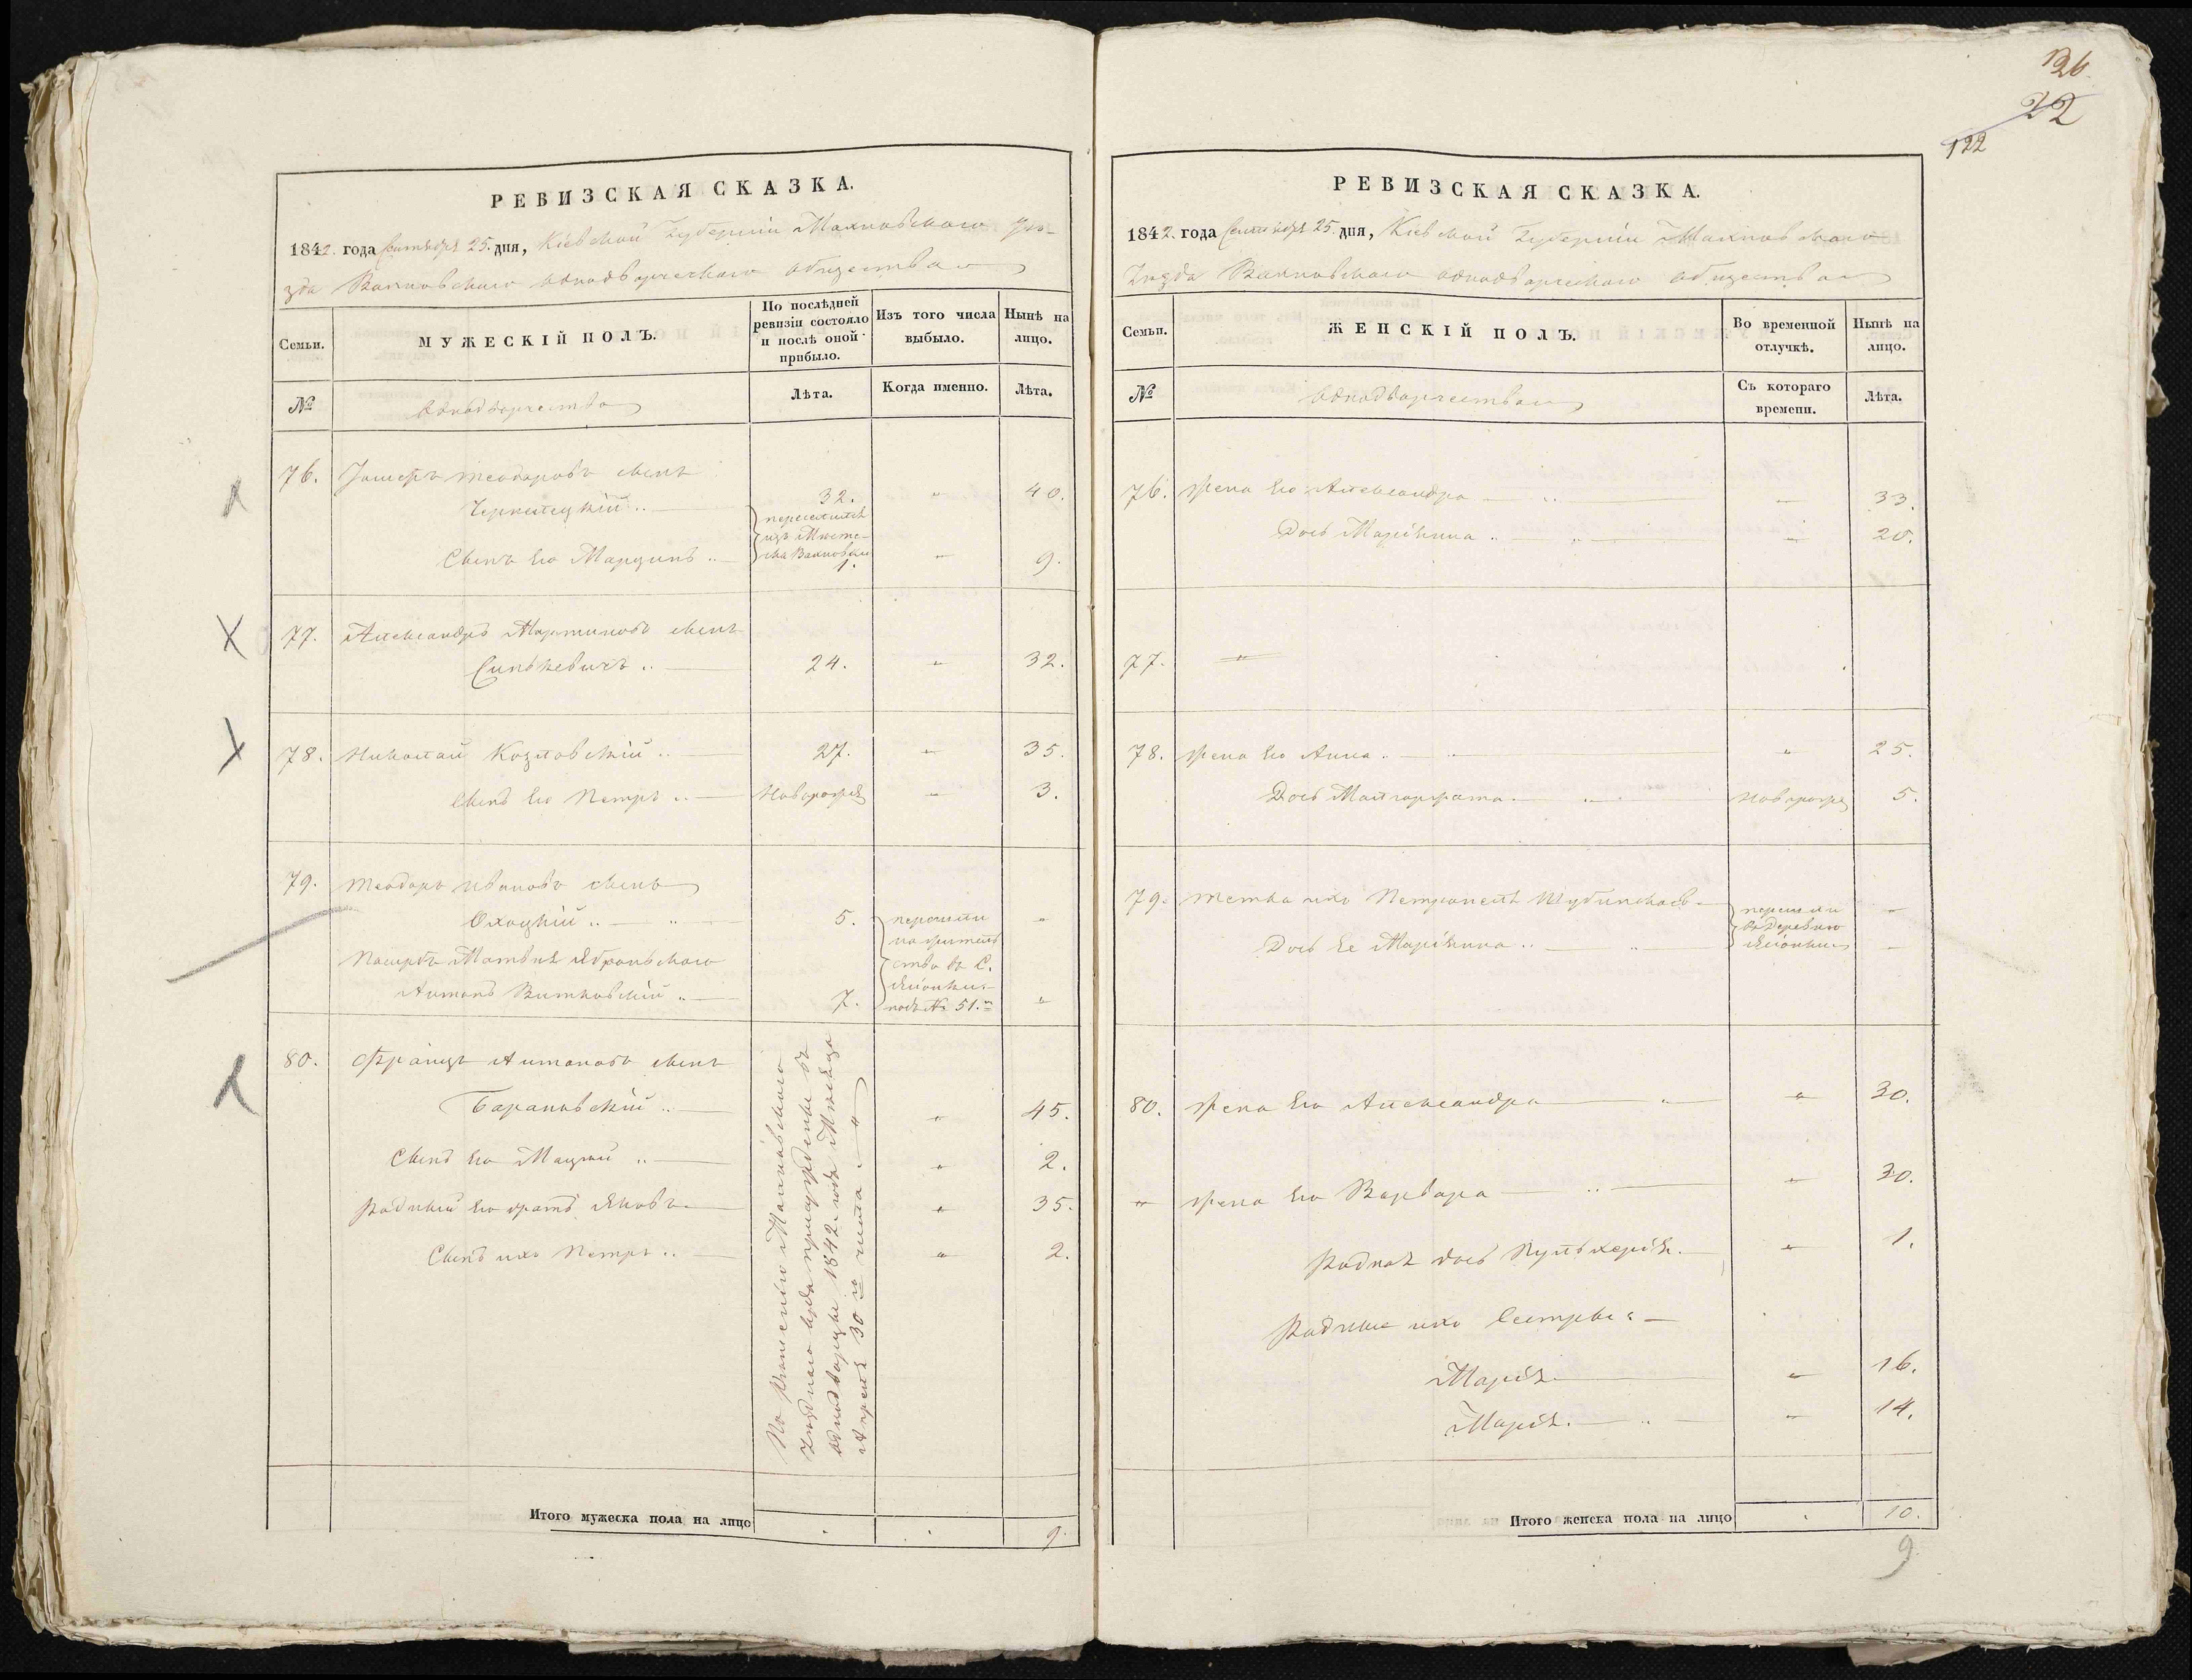 РЕВИЗСКАЯ СКАЗКА.
1842. года Сентября 25. дня, Кіевской Губерніи Махновскаго Уѣ-
зда Вахновскаго однодворческаго общества
Семьи.
МУЖЕСКІЙ ПОЛЪ.
По послѣдней ревизіи состояло и послѣ оной прибыло.
Изъ того числа выбыло.
Нынѣ на лицо.
№
однодворчества
Лѣта.
Когда именно.
Лѣта.
76. Теодоровъ сынъ
32. " 40.
переселился
изъ Мѣсте-
чка Вахновки
Сынъ его Марцинъ .. 1. " 9.
77. Александръ Мартиновъ сынъ
Синькевичъ .. 24. " 32.
78. Николай Козловскій .. 27. " 35.
Сынъ его Петръ .. Новорожд " 3.
79. Теодоръ Ивановъ сынъ
Охоцкій .. 5. "
перешли
на житель
ство въ С.
подъ № 51.
Матвея
Антонъ Витковскій .. 7. "
80. Францъ Антоновъ сынъ
Барановскій .. " 45.
Сынъ его Мацей .. " 2.
Родный его братъ Яковъ " 35.
Сынъ ихъ Петръ .. " 2.
По Махновскаго
Уѣзднаго Суда въ
однодворцы 1842. года Мѣсяца
Апреля 30 го числа "
Итого мужеска пола на лицо 9.
136
22
122
РЕВИЗСКАЯ СКАЗКА.
1842. года Сентября 25. дня, Кіевской Губерніи Махновскаго
Уѣзда Вахновскаго однодворческаго общества
Семьи.
ЖЕНСКІЙ ПОЛЪ.
Во временной отлучкѣ.
Нынѣ на лицо.
№
однодворчества
Съ котораго времени.
Лѣта.
76. Жена его Александра " 33.
Дочь Маріянна .. " 20.
77. "
78. Жена его Анна. " 25.
Дочь Малгоржата. новорожд 5.
79. Тетка ихъ "
перешли
въ Деревню
Дочь ее Маріянна .. "
80. Жена его Александра " 30.
" Жена его Варвара " 30.
Родная дочь Пульхерія. " 1.
Родные ихъ Сестры:
Марія. " 16.
Марія. " 14.
Итого женска пола на лицо 10.
9